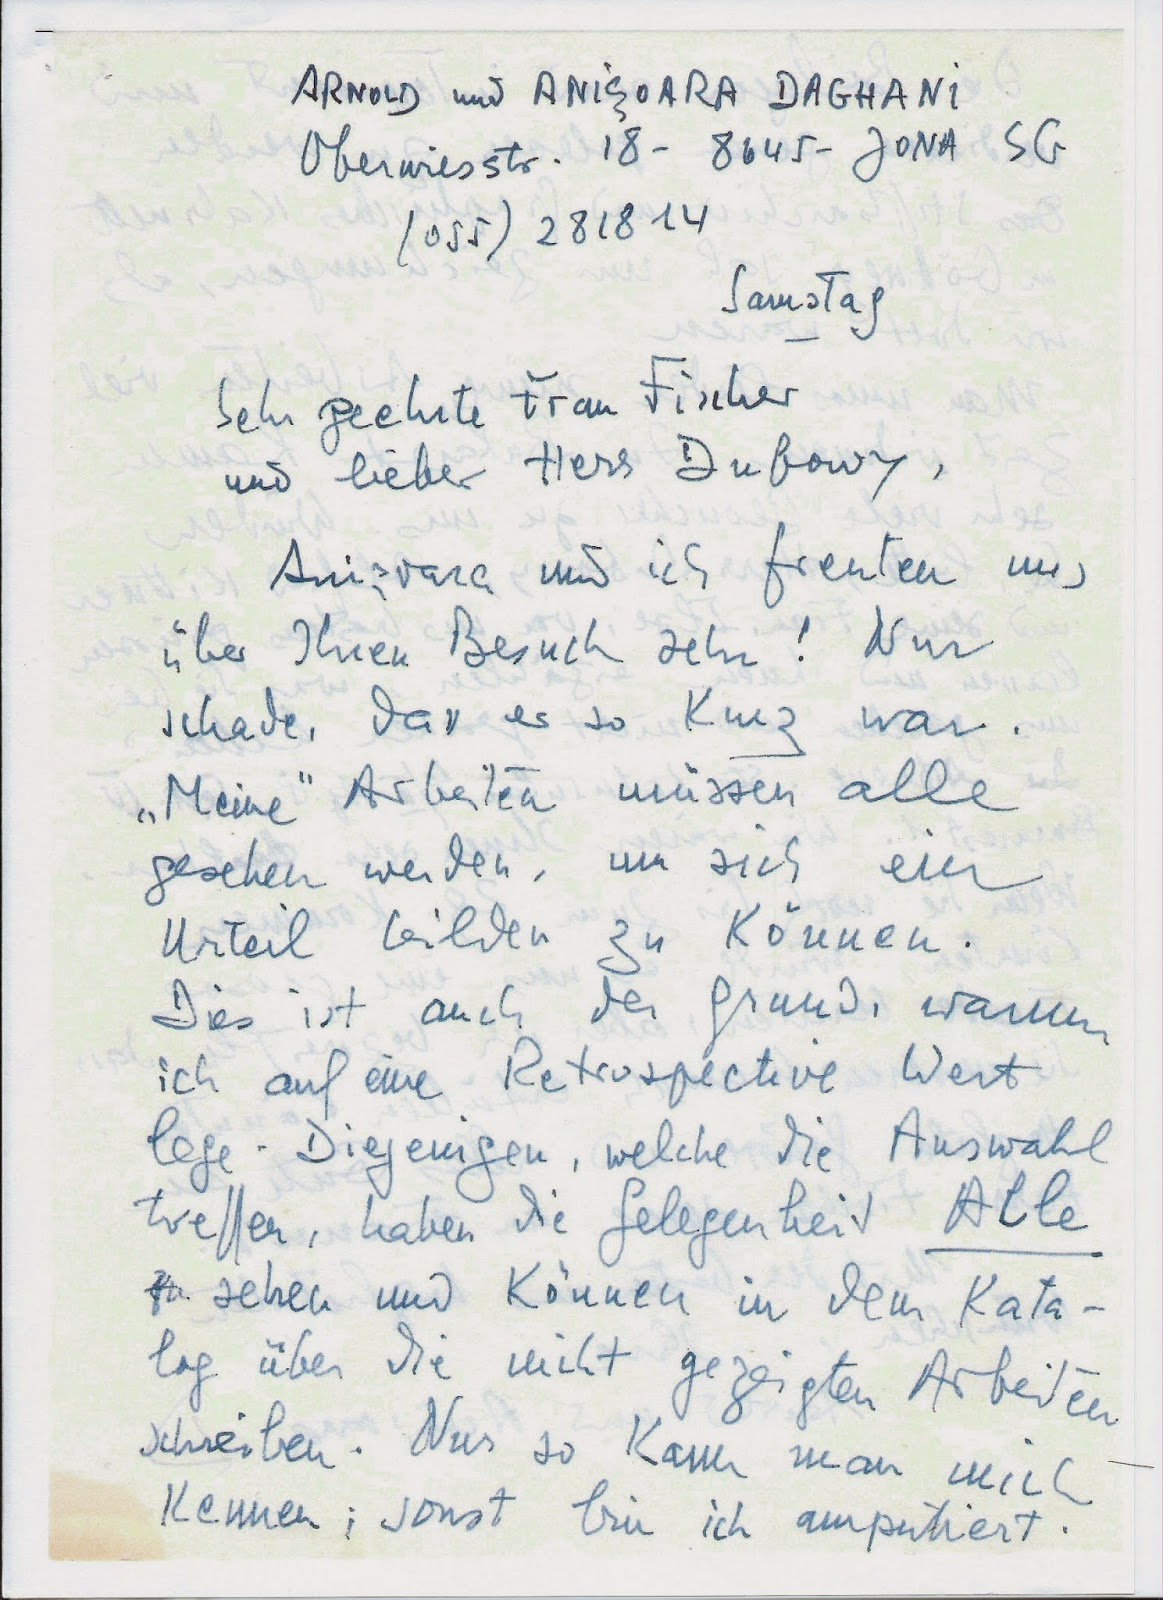 ARNOLD und ANIȘOARA DAGHANI
Oberwiesstr. 18 - 8645 - JONA SG
(055) 281814
Samstag
Sehr geehrte Frau Fischer
und lieber Herr Dubowy,
Anișoara und ich freuten uns
über Ihren Besuch sehr! Nur
schade, dass es so Kurz war.
„Meine" Arbeiten müssen alle
gesehen werden, um sich ein
Urteil bilden zu Können.
Dies ist auch der Grund, warum
ich auf eine Retrospective Wert
lege. Diejenigen, welche die Auswahl
treffen, haben die Gelegenheit Alle
zu sehen und Können in dem Kata-
log über die nicht gezeigten Arbeiten
schreiben. Nur so Kann man mich
Kennen; sonst bin ich amputiert.